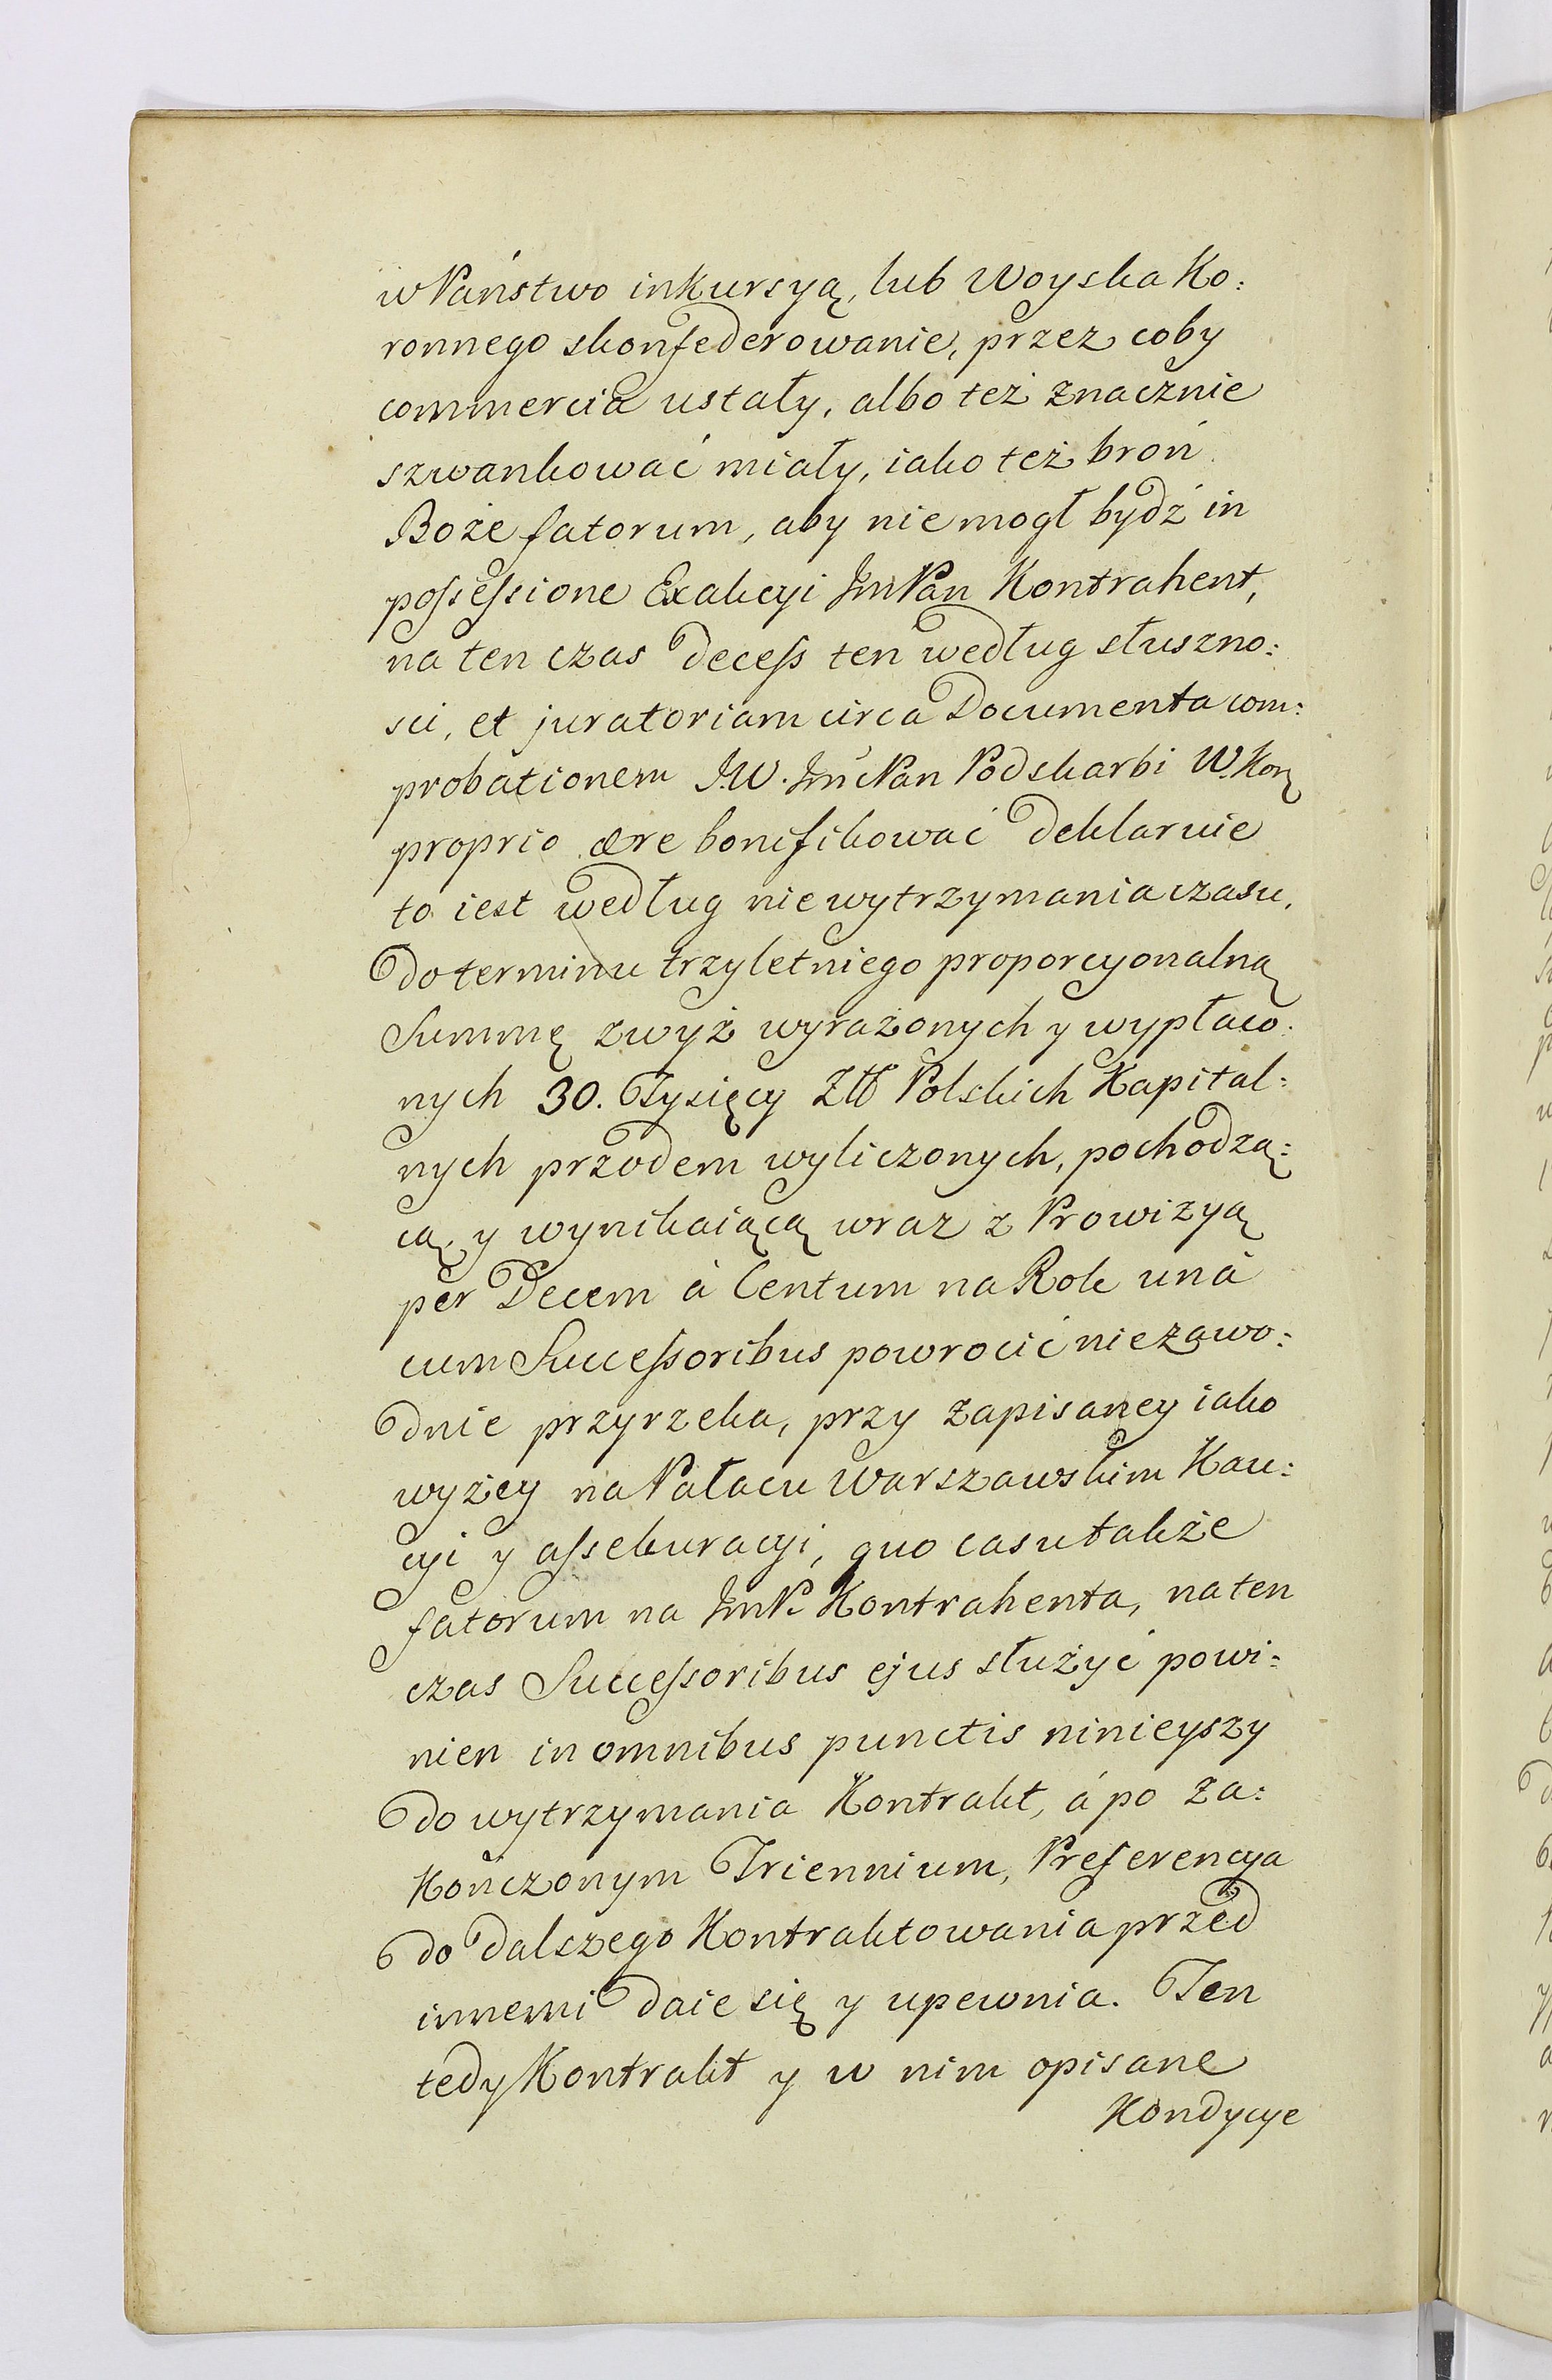 w Państwo inkursyą, lub Woyska Ko:
ronnego skonfederowanie, przez coby
commercia ustały, albo też znacznie
szwankować miały, iako też broń
Boże fatorum, aby nie mogł bydź in
possessione Exakcyi JmPan Kontrahent,
na ten czas decess ten według słuszno:
sci, et juratoriam circa Documenta com:
probationem J.W. JmćPan Podskarbi W. Kor̃
proprio ære bonifikować deklaruie
to iest według nie wytrzymania czasu,
do terminu trzyletniego proporcyonalną
Summę zwyż wyrażonych y wypłaco:
nych 30. Tysięcy Złł Polskich Kapital:
nych przodem wyliczonych, pochodzą:
cą, y wynikaiącą wraz z Prowizyą
per Decem à Centum na Rok unà
cum Successoribus powrocić niezawo:
dnie przyrzeka, przy zapisaney iako
wyżey na Pałacu Warszawskim Kau:
cyi y assekuracyi, quo casu także
fatorum na JmP. Kontrahenta, na ten
czas Successoribus ejus służyć powi:
nien in omnibus punctis ninieyszy
do wytrzymania Kontrakt, á po za:
kończonym Triennium, Preferencya
do dalszego Kontraktowania przed
innemi daie się y upewnia. Ten
tedy Kontrakt y w nim opisane
Kondycye